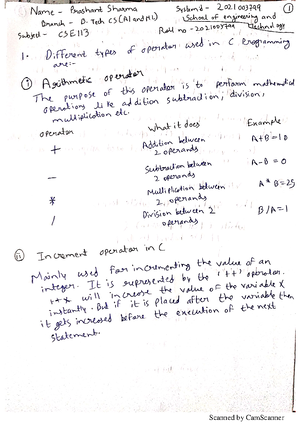 Name - Prashant Sharma SystemId - 2021003799 1
Branch - B. Tech CS (AI and ML) School of engineering and Technology
Subject - CSE113 Roll no - 2021003799
1. Different types of operator used in C programming
are:-
(i) Arithmetic operator
The purpose of this operator is to perform mathematical
operations like addition subtraction, division,
multiplication etc.
operator What it does Example
+ Addition between 2 operands A+B=10
- Subtraction between 2 operands A-B=0
* Multiplication between 2, operands A*B=25
/ Division between 2 operands B/A=1
(ii) Increment operator in C
Mainly used for incrementing the value of an
integer. It is represented by the '++' operator.
++x will increase the value of the variable x
instantly. But if it is placed after the variable then
it gets incresed before the execution of the next
statement.
Scanned by CamScanner